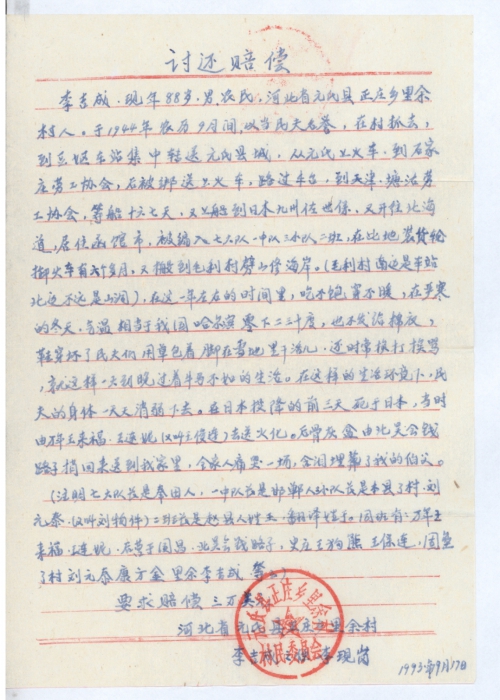 讨还赔偿
李吉成·现年88岁·男农民,河北省元氏县正庄乡里余
村人。于1944年农历9月间,以当民夫名誉,在村抓去,
到 车站集中转送元氏县城,从元氏上火车,到石家
庄劳工协会,后被绑送上火车,路过丰台,到天津塘沽劳
工协会,等船十六七天,又上船到日本九州佐世保,又开往北海
道,居住函馆市,被编入七大队一中队三小队二班,在此地装货轮
掷火车有 个月,又搬到毛利村劈山修海岸。(毛利村南边是车站
北边不远是山洞),在这一年左右的时间里,吃不饱穿不暖,在严寒
的冬天,气温相当于我国哈尔滨零下二三十度,也不发给棉衣,
鞋穿坏了民夫们用草包着脚在雪地里干活儿·还时常挨打挨骂
,就这样一去到晚过着牛马不如的生活。在这样的生活环境下,民
夫的身体一天天消弱下去。在日本投降的前三天死于日本,当时
由 王来福·王连妮(又叫王俊连)去送火化。后骨灰盒由北吴会钱
路子捎回来送到我家里,全家人痛哭一场,含泪埋葬了我的伯父。
(注明七大队长是秦田人,一中队长是邯郸人 小队长是本县了村·刘
元泰·(又叫刘物件)二班长是赵县人姓王·翻译姓于。同班有: 王
来福·王连妮· 同昌·北吴会钱路子·史庄王狗熊王保连,因鱼
了村刘元泰 方金里余李吉成 等。)
要求赔偿三万美
河北省元氏县 庄乡里余村
李吉成 李现岗
1993年9月17日
村民委员会